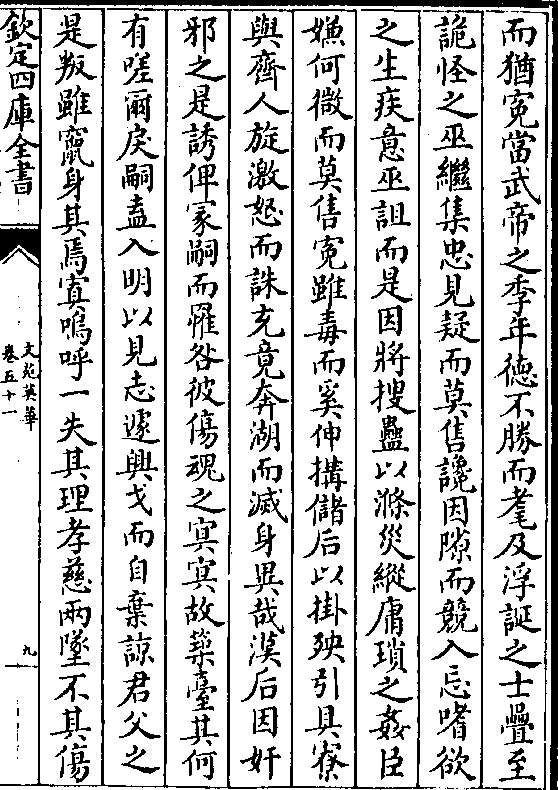 而猶寃當武帝之季年德不勝而耄及浮誕之士疊至
詭怪之巫繼集忠見疑而莫售讒因隙而競入忘嗜欲
之生疾意巫詛而是因將搜蠱以滌災縱庸瑣之姦臣
嫌何微而莫售寃雖毒而奚伸搆儲后以掛殃引具寮
與齊人旋激怒而誅充竟奔湖而滅身異哉漢后因奸
邪之是誘俾冢嗣而罹咎彼傷魂之寘寘故築臺其何
有嗟爾戾嗣盍入明以見志遽興戈而自棄諒君父之
是叛雖竄身其焉寘嗚呼一失其理孝慈兩墜不其傷
欽定四庫全書
文苑英華
卷五十一
九